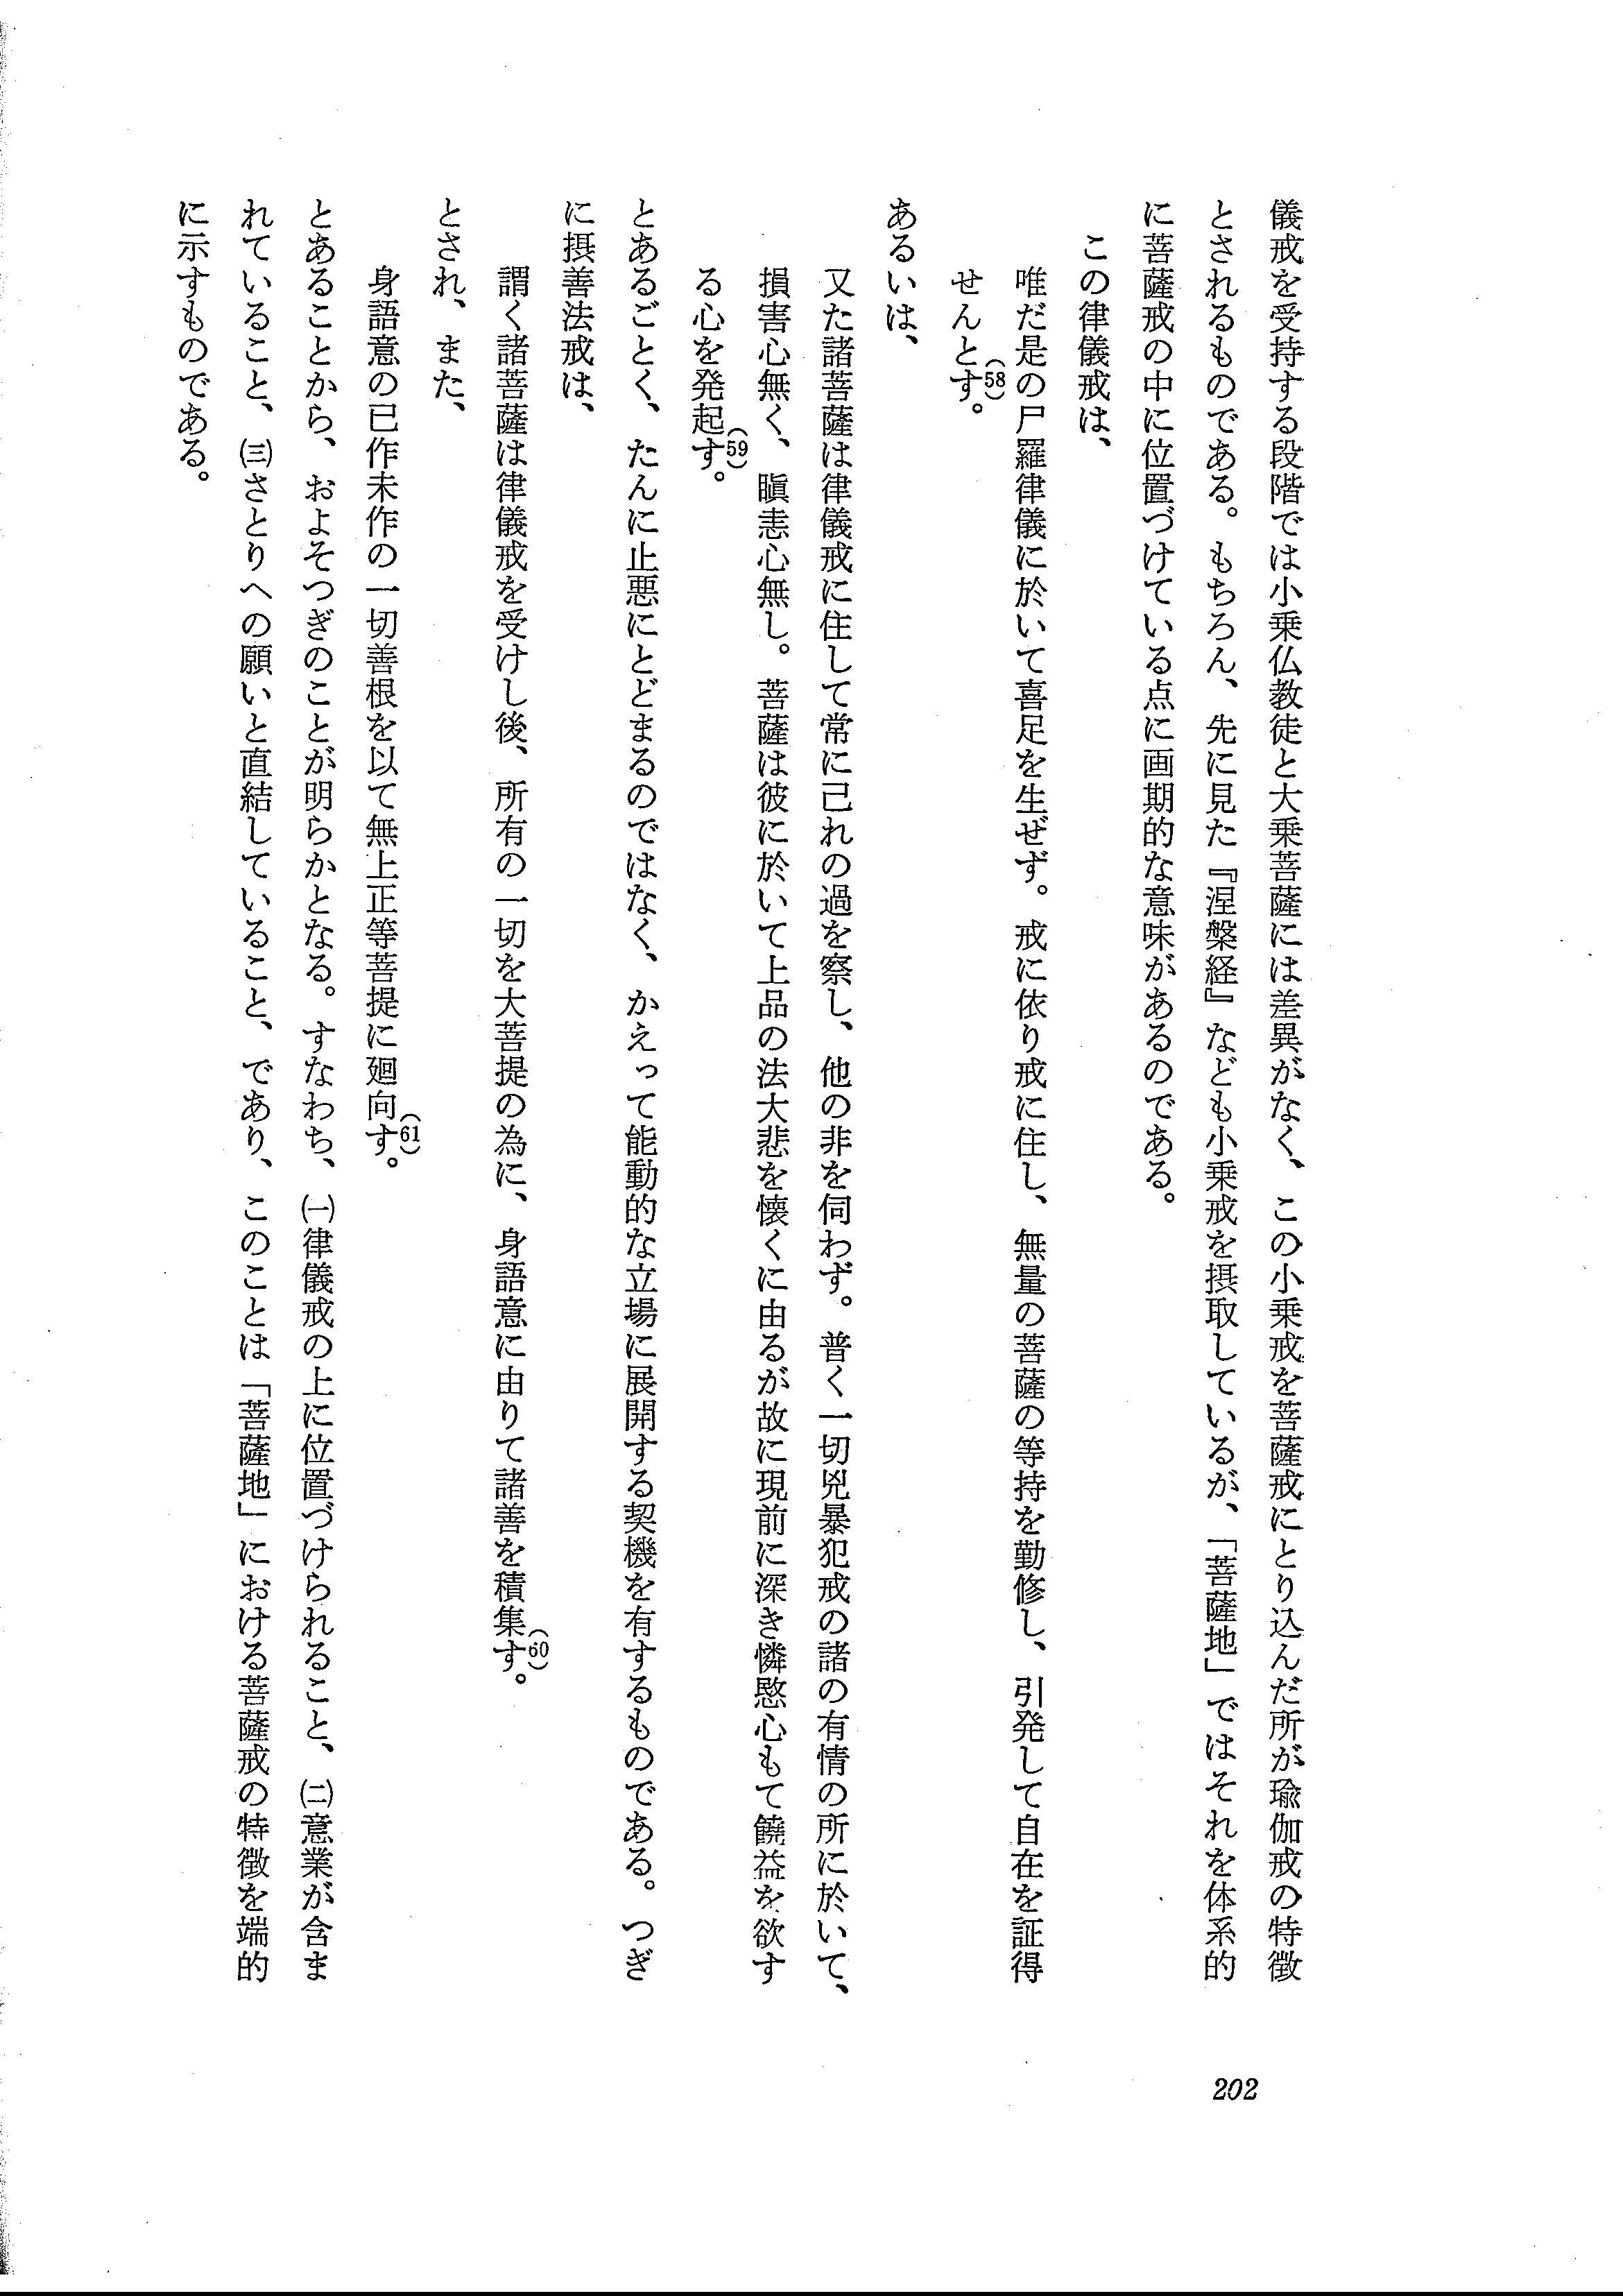 儀戒を受持する段階では小乗仏教徒と大乗菩薩には差異がなく、この小乗戒を菩薩戒にとり込んだ所が瑜伽戒の特徴
とされるものである。もちろん、先に見た『涅槃経』なども小乗戒を摂取しているが、「菩薩地」ではそれを体系的
に菩薩戒の中に位置づけている点に画期的な意味があるのである。
この律儀戒は、
唯だ是の尸羅律儀に於いて喜足を生ぜず。戒に依り戒に住し、無量の菩薩の等持を勤修し、引発して自在を証得
せんとす。(58)
あるいは、
又た諸菩薩は律儀戒に住して常に己れの過を察し、他の非を伺わず。普く一切兇暴犯戒の諸の有情の所に於いて、
損害心無く、瞋恚心無し。菩薩は彼に於いて上品の法大悲を懐くに由るが故に現前に深き憐愍心もて饒益を欲す
る心を発起す。(59)
とあるごとく、たんに止悪にとどまるのではなく、かえって能動的な立場に展開する契機を有するものである。つぎ
に摂善法戒は、
謂く諸菩薩は律儀戒を受けし後、所有の一切を大菩提の為に、身語意に由りて諸善を積集す。(60)
とされ、また、
身語意の已作未作の一切善根を以て無上正等菩提に廻向す。(61)
とあることから、およそつぎのことが明らかとなる。すなわち、㈠律儀戒の上に位置づけられること、㈡意業が含ま
れていること、㈢さとりへの願いと直結していること、であり、このことは「菩薩地」における菩薩戒の特徴を端的
に示すものである。
202